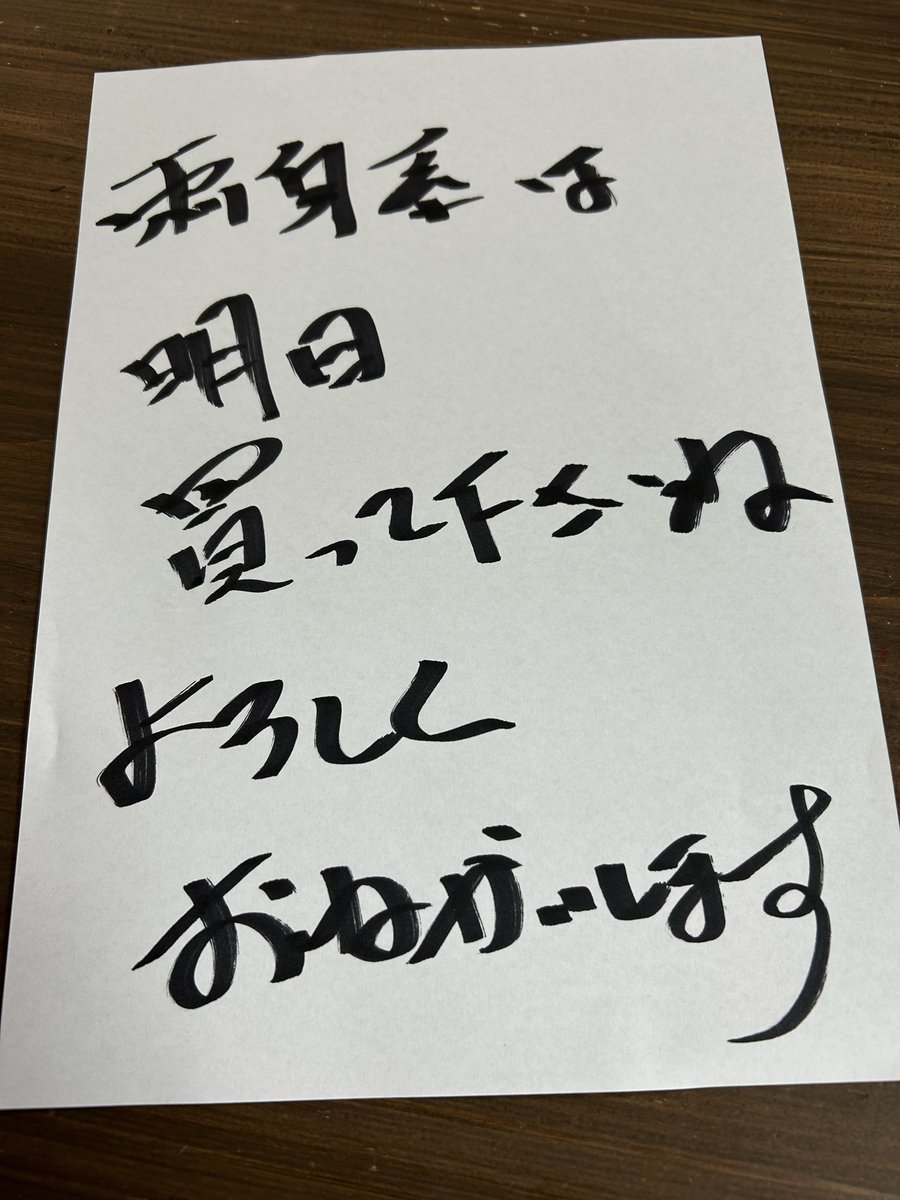 は
明日
買って下さいね
よろしく
おねがいします